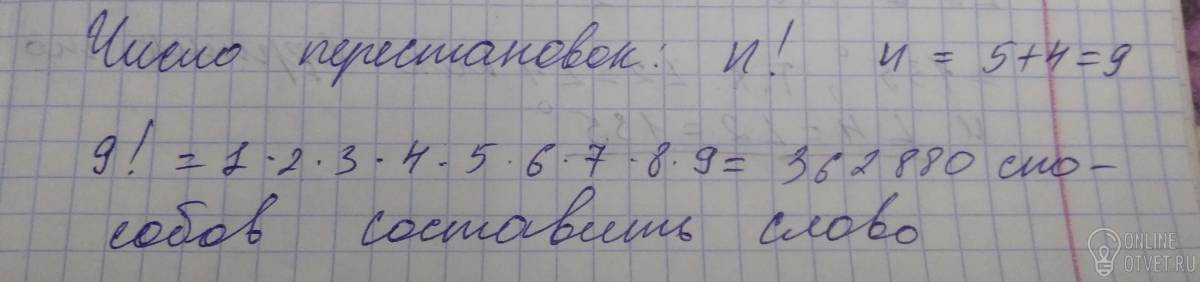 Число перестановок: n! n = 5+4=9
9! = 1·2·3·4·5·6·7·8·9= 362880 спо-
собов составить слово
ONLINE
OTVET.RU